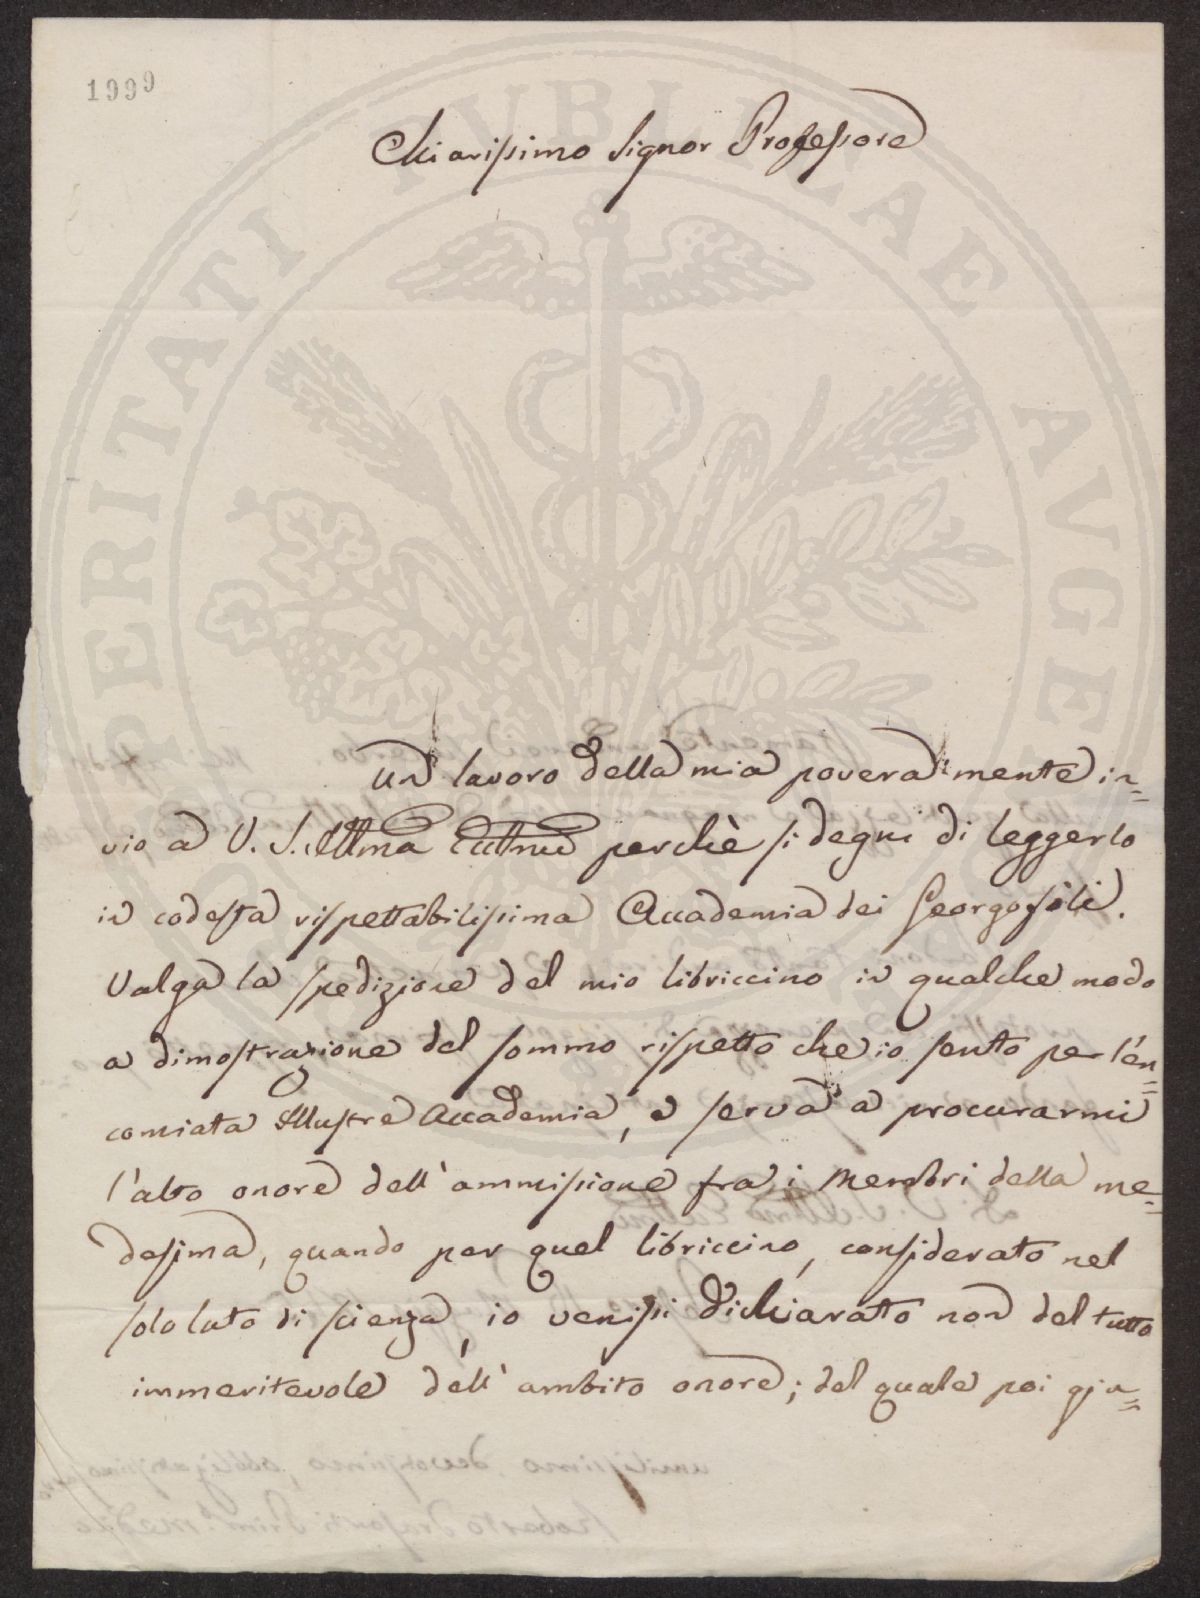 1999
Chiarissimo Signor Professore
Un lavoro della mia povera mente in=
vio a V. S. Illma Eccma perchè si degni di leggerlo
in codesta rispettabilissima Accademia dei Georgofili.
Valga la spedizione del mio libriccino in qualche modo
a dimostrazione del sommo rispetto che io sento per l'en=
comiata Illustre Accademia, e serva a procurarmi
l'alto onore dell'ammissione fra i Membri della me=
desima, quando per quel libriccino, considerato nel
solo lato di scienza, io venissi dichiarato non del tutto
immeritevole dell'ambito onore; del quale poi gia=
PERITATI PVBLICAE AVGE